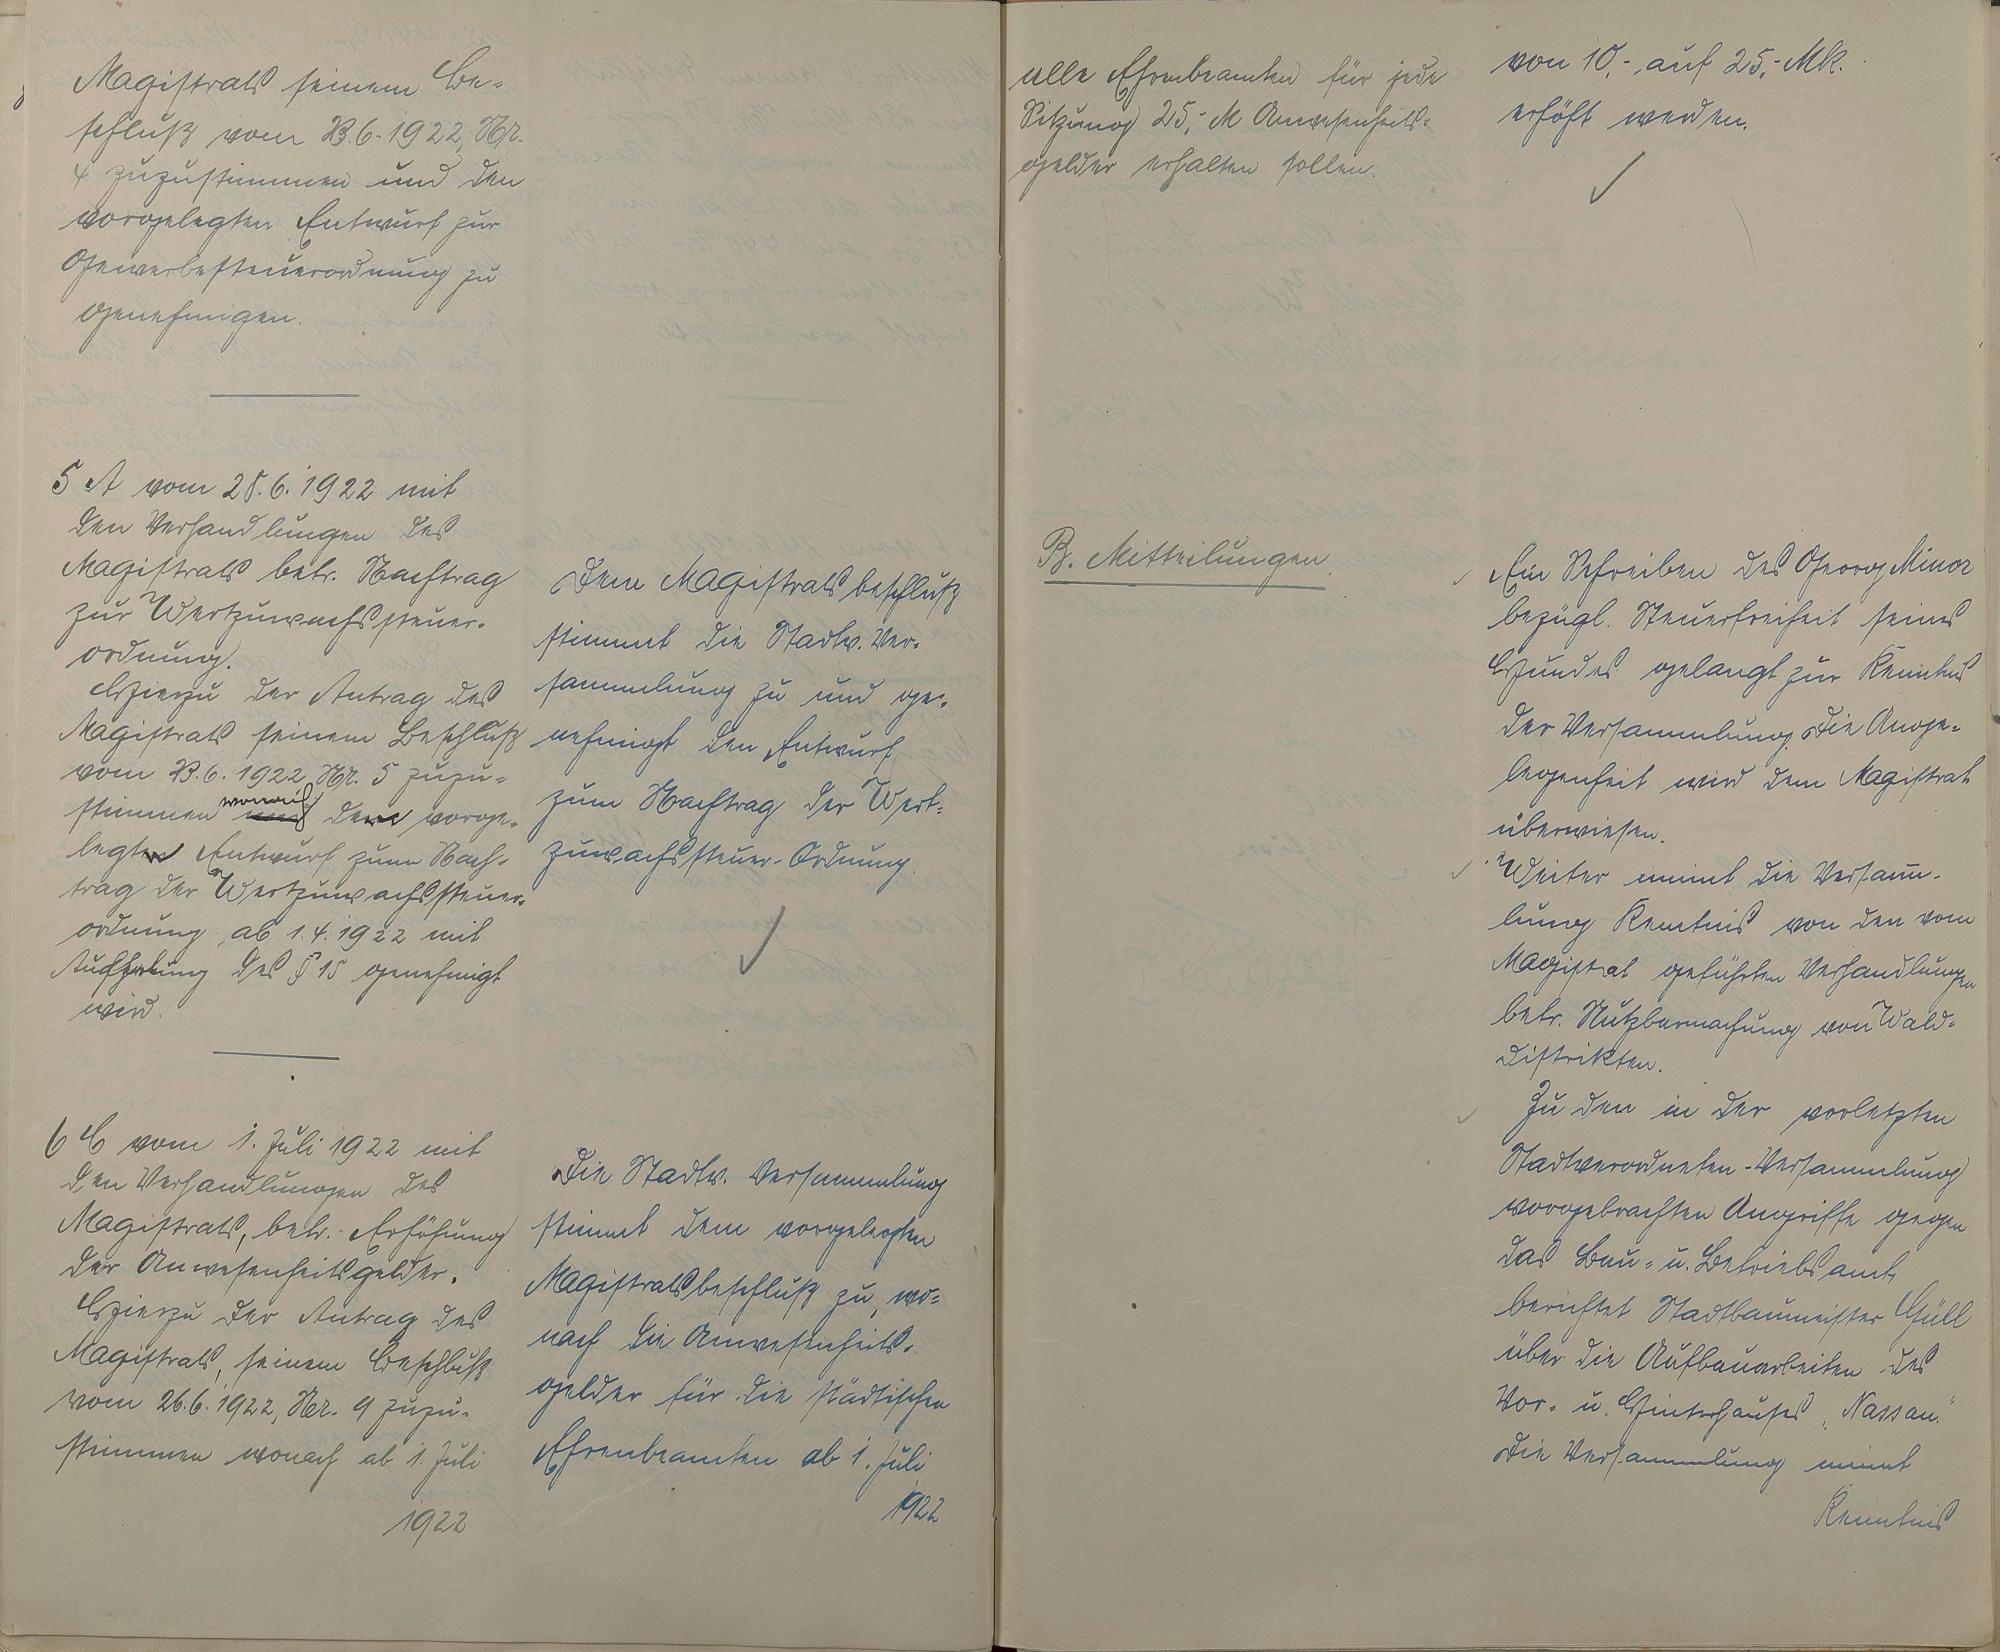 Magistrats seinem Be-
schluß vom 23.6.1922, Nr.
4 zuzustimmen und den
vorgelegten Entwurf zur
Gewerbesteuerordnung zu
genehmigen.
5 A vom 28.6.1922 mit
den Verhandlungen des
Magistrats betr. Nachtrag
zur Wertzuwachssteuer-
ordnung.
Hierzu der Antrag des
Magistrats seinem Beschluß
vom 23.6.1922 Nr. 5 zuzu-
stimmen wonach der vorge-
legte Entwurf zum Nach-
trag der Wertzuwachssteuer-
ordnung ab 1.4.1922 mit
des § 15 genehmigt
wird.
6 C vom 1. Juli 1922 mit
den Verhandlungen des
Magistrats, betr. Erhöhung
der Anwesenheitsgelder.
Hierzu der Antrag des
Magistrats, seinem Beschluß
vom 26.6.1922, Nr. 9 zuzu-
stimmen wonach ab 1. Juli
1922
Dem Magistratsbeschluß
stimmt die Stadtv. Ver-
sammlung zu und ge-
nehmigt den Entwurf
zum Nachtrag der Wert-
zuwachssteuer-Ordnung.
Die Stadtv. Versammlung
stimmt dem vorgelegten
Magistratsbeschluß zu, wo-
nach die Anwesenheits-
gelder für die städtischen
Ehrenbeamten ab 1. Juli
1922
alle Ehrenbeamten für jede
Sitzung 25,- M Anwesenheits-
gelder erhalten sollen.
B. Mitteilungen.
von 10,- auf 25,- Mk.
erhöht werden.
Ein Schreiben des Georg Minor
bezügl. Steuerfreiheit seines
Hundes gelangt zur Kenntnis
der Versammlung. Die Ange-
legenheit wird dem Magistrat
überwiesen.
Weiter nimmt die Versamm-
lung Kenntnis von den vom
Magistrat geführten Verhandlungen
betr. Nutzbarmachung von Wald-
distrikten.
Zu den in der vorletzten
Stadtverordneten-Versammlung
vorgebrachten Angriffe gegen
das Bau- u. Betriebsamt
berichtet Stadtbaumeister Güll
über die Aufbauarbeiten des
Vor- u. Hinterhauses „Nassau."
Die Versammlung nimmt
Kenntnis